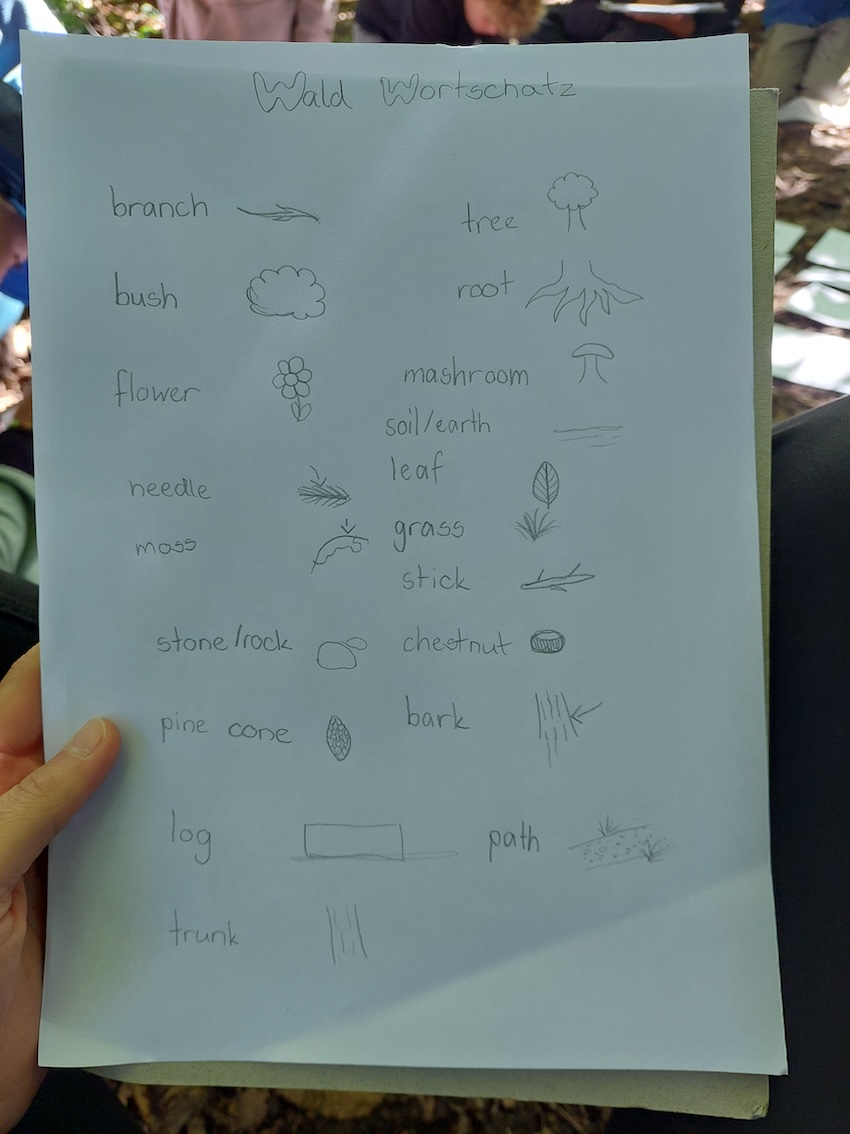 Wald Wortschatz
branch
tree
bush
root
flower
mashroom
soil/earth
leaf
needle
grass
moss
stick
stone/rock
chestnut
pine cone
bark
log
path
trunk